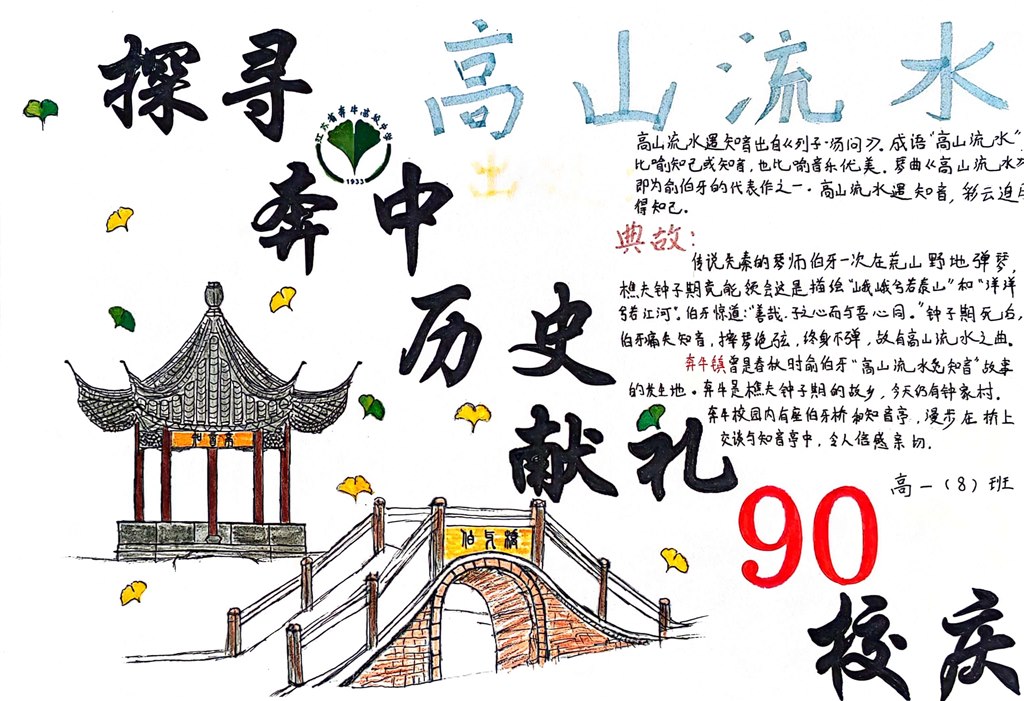 探寻
高山流水
江苏省奔牛高级中学
1933
奔中
历史
献礼
90
校庆
高山流水遇知音出自《列子·汤问》，成语"高山流水"，
比喻知己或知音，也比喻音乐优美。琴曲《高山流水》
即为俞伯牙的代表作之一。高山流水遇知音，彩云追月
得知己。
典故：
传说先秦的琴师伯牙一次在荒山野地弹琴，
樵夫钟子期竟能领会这是描绘"峨峨兮若泰山"和"洋洋
兮若江河"。伯牙惊道："善哉，子之心而与吾心同。"钟子期死后，
伯牙痛失知音，摔琴绝弦，终身不弹，故有高山流水之曲。
奔牛镇曾是春秋时俞伯牙"高山流水觅知音"故事
的发生地。奔牛是樵夫钟子期的故乡，今天仍有钟家村。
奔牛校园内有座伯牙桥和知音亭，漫步在桥上
交谈与知音亭中，令人倍感亲切。
高一（8）班
伯牙桥